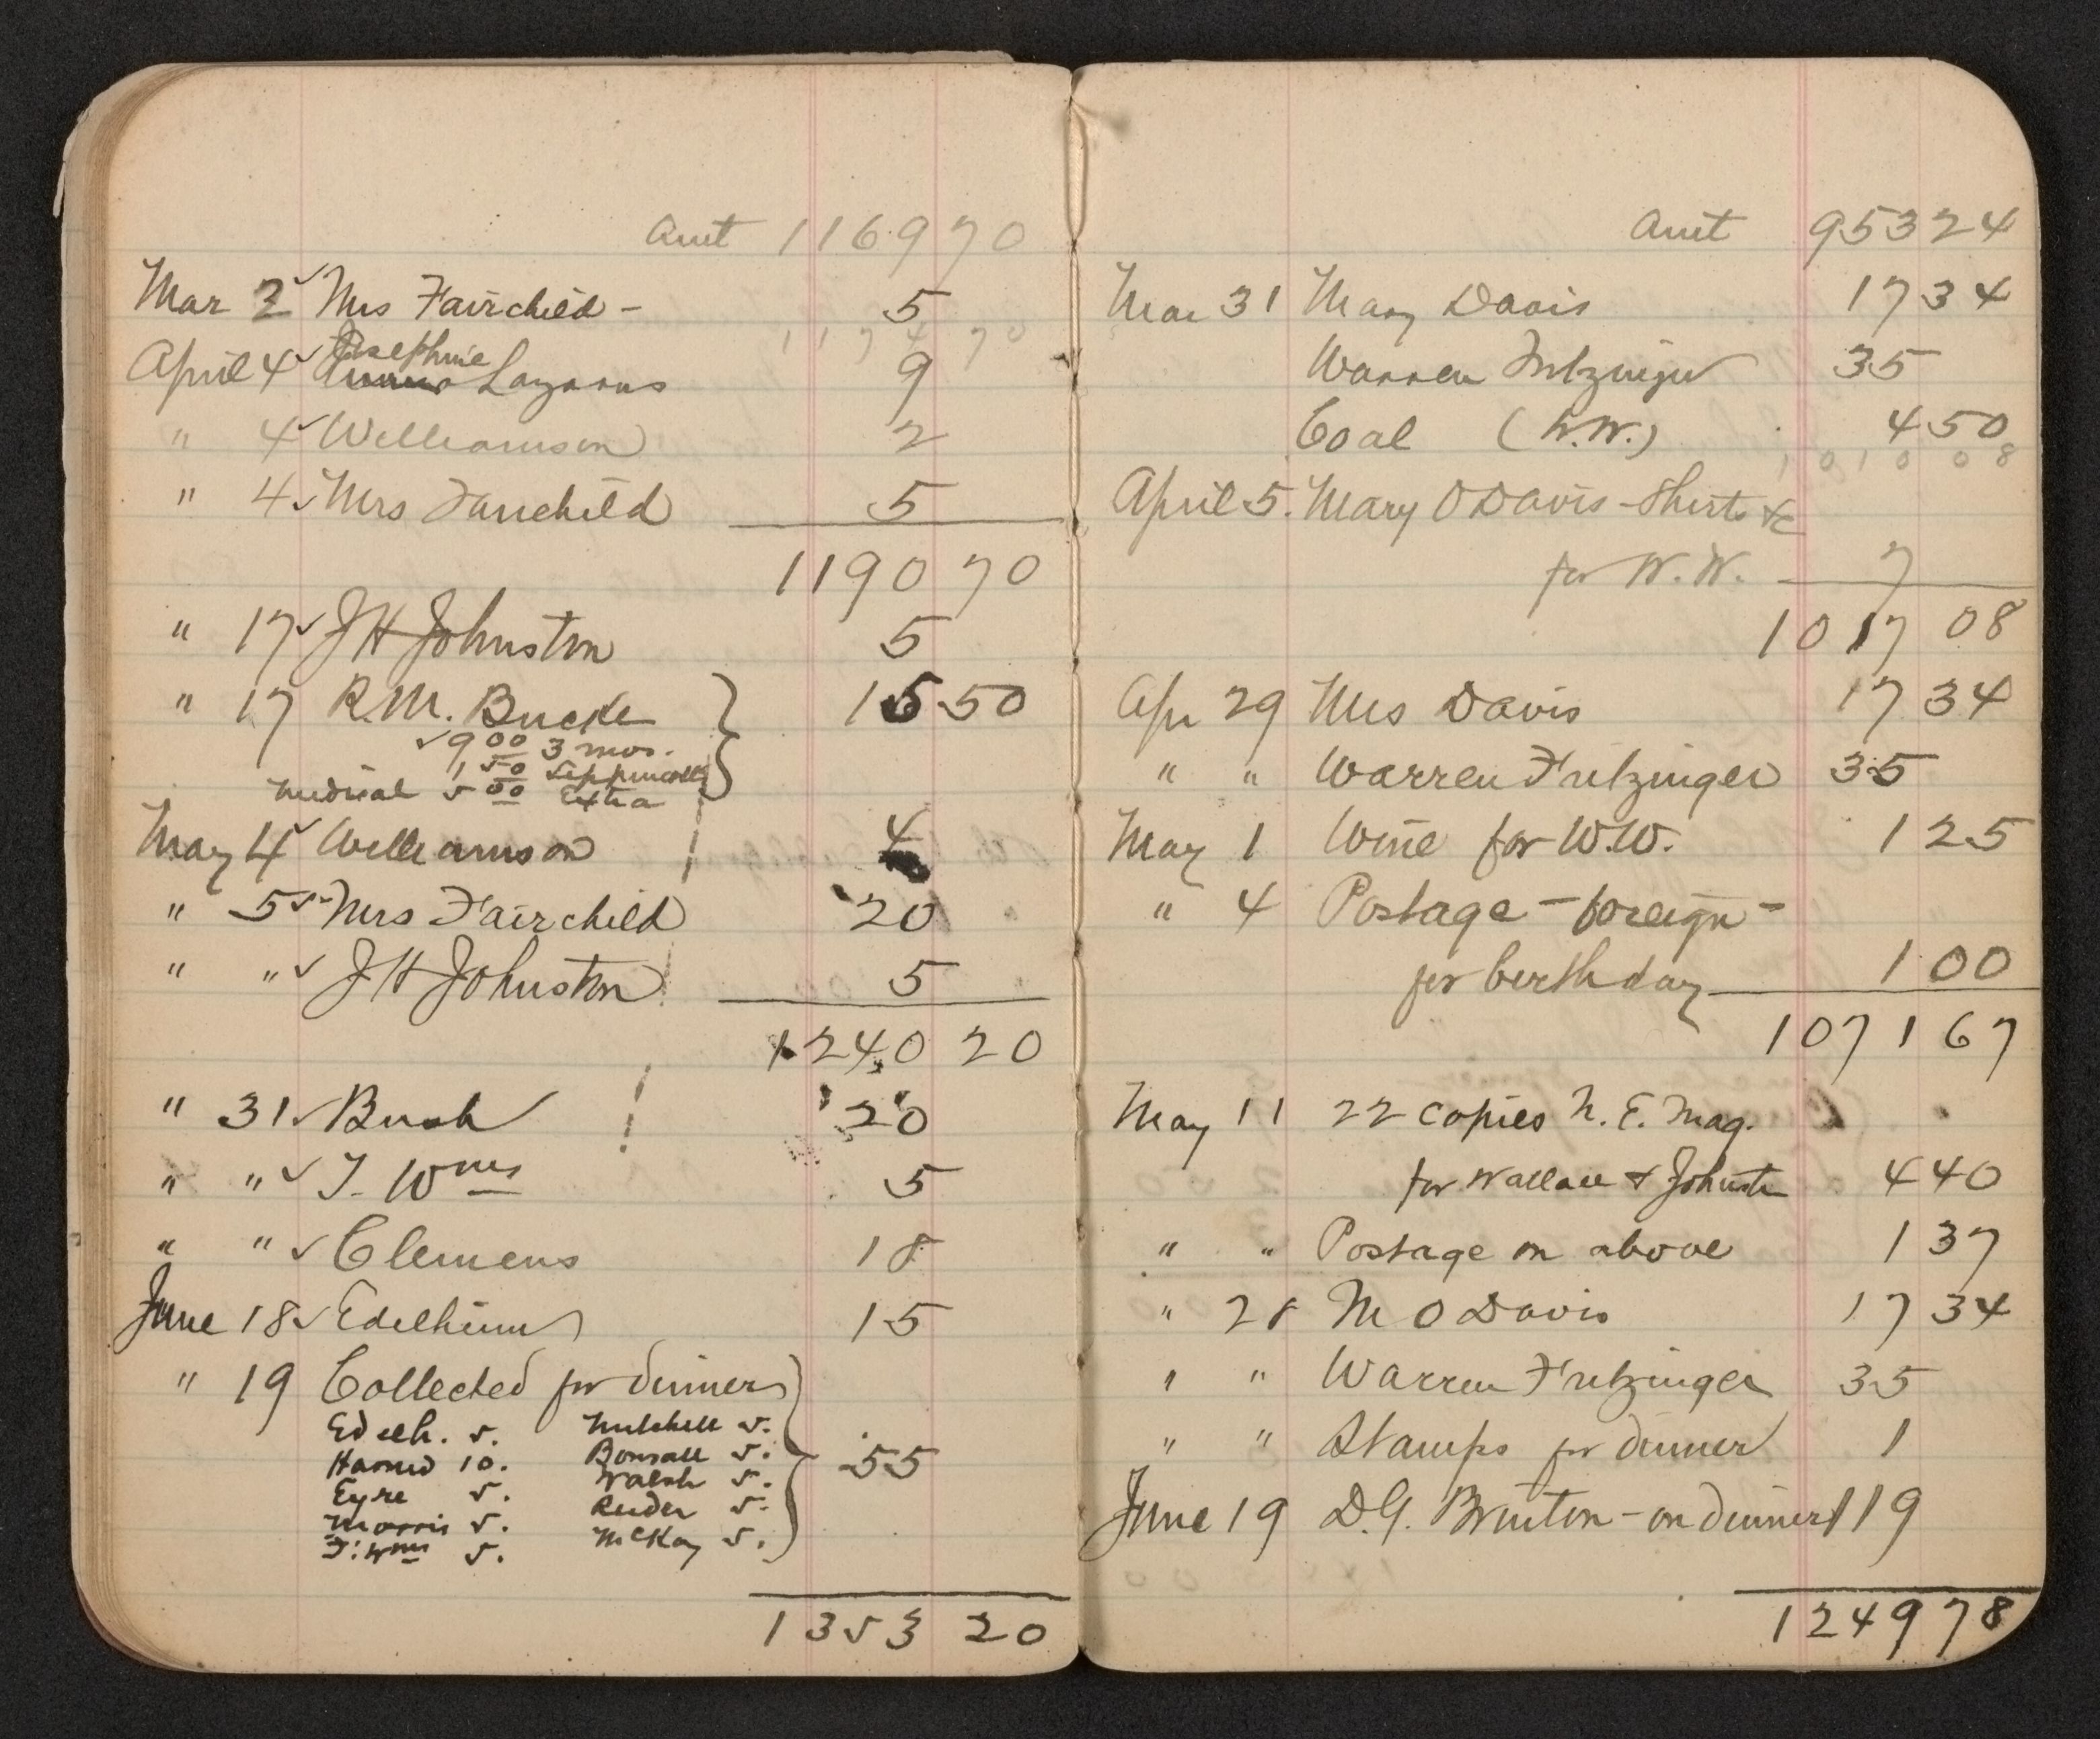 Amt 1169 70
Mar 2 ✓ Mrs Fairchild - 5
1174 70
April 4 ✓ Josephine Lazarus 9
" 4 ✓ Williamson 2
" 4 ✓ Mrs Fairchild 5
1190 70
" 17 ✓ J H Johnston 5
" 17 R.M. Bucke } 15 50
✓ 9 00 3 mos.
1 50 Lippincotts
Medical 5 00 Extra
May 4 ✓ Williamson 4
" 5 ✓ Mrs Fairchild 20
" " ✓ J H Johnston 5
1240 20
" 31 ✓ Bush 20
" " ✓ T. Wms 5
" " ✓ Clemens 18
June 18 ✓ Edelheim 15
" 19 Collected for dinner } 55
Edelh. 5. Mitchell 5.
Harned 10. Bonsall 5.
Eyre 5. Walsh 5.
Morris 5. Reeder 5.
T. Wms 5. McKay 5.
1353 20
Amt 953 24
Mar 31 Mary Davis 17 34
Warren Fritzinger 35
Coal (W.W.) 4 50
1010 08
April 5. Mary O Davis - Shirts &c
for W.W. 7
1017 08
Apr 29 Mrs Davis 17 34
" " Warren Fritzinger 35
May 1 Wine for W.W. 1 25
" 4 Postage - foreign -
for birthday 1 00
1071 67
May 11 22 copies N. E. Mag.
for Wallace & Johnston 4 40
" " Postage on above 1 37
" 28 M O Davis 17 34
" " Warren Fritzinger 35
" " Stamps for dinner 1
June 19 D.G. Brinton - on dinner 119
1249 78